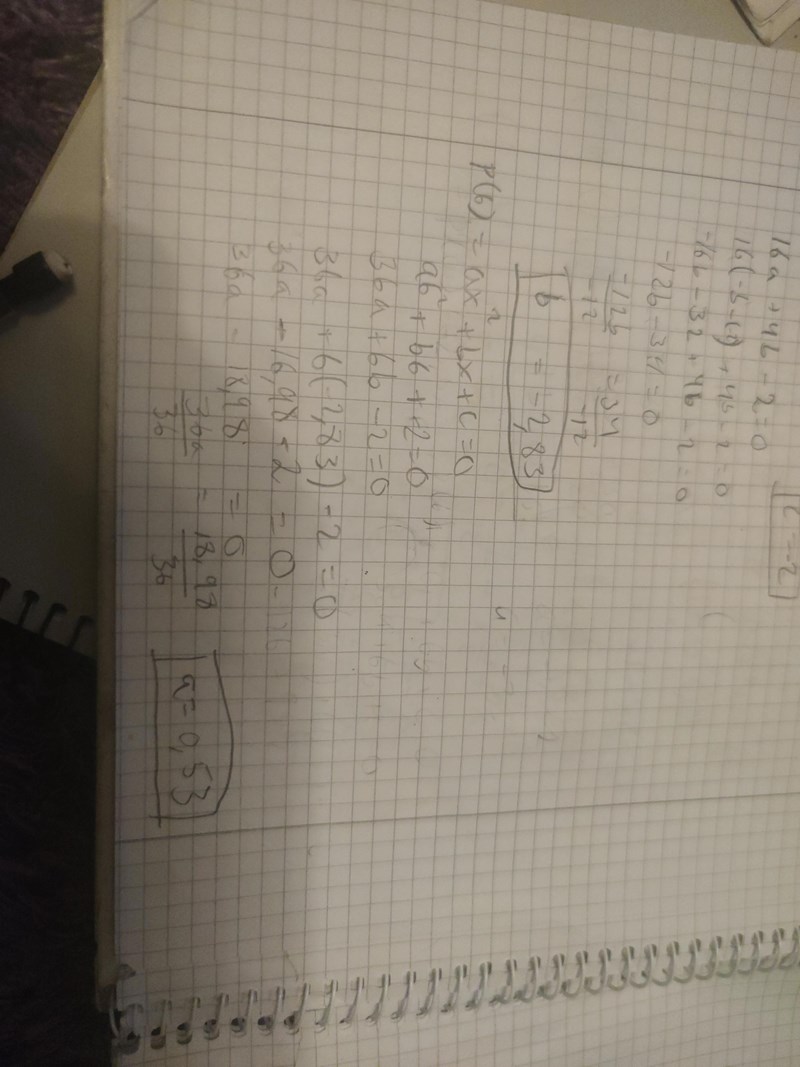 c = -2
16a + 4b - 2 = 0
16(-b-2) + 4b - 2 = 0
-16b - 32 + 4b - 2 = 0
-12b - 34 = 0
-12b/-12 = 34/-12
b = -2,83
P(6) = ax² + bx + c = 0
a6² + b6 + -2 = 0
36a + 6b - 2 = 0
36a + 6(-2,83) - 2 = 0
36a - 16,98 - 2 = 0
36a - 18,98 = 0
36a/36 = 18,98/36
a = 0,53